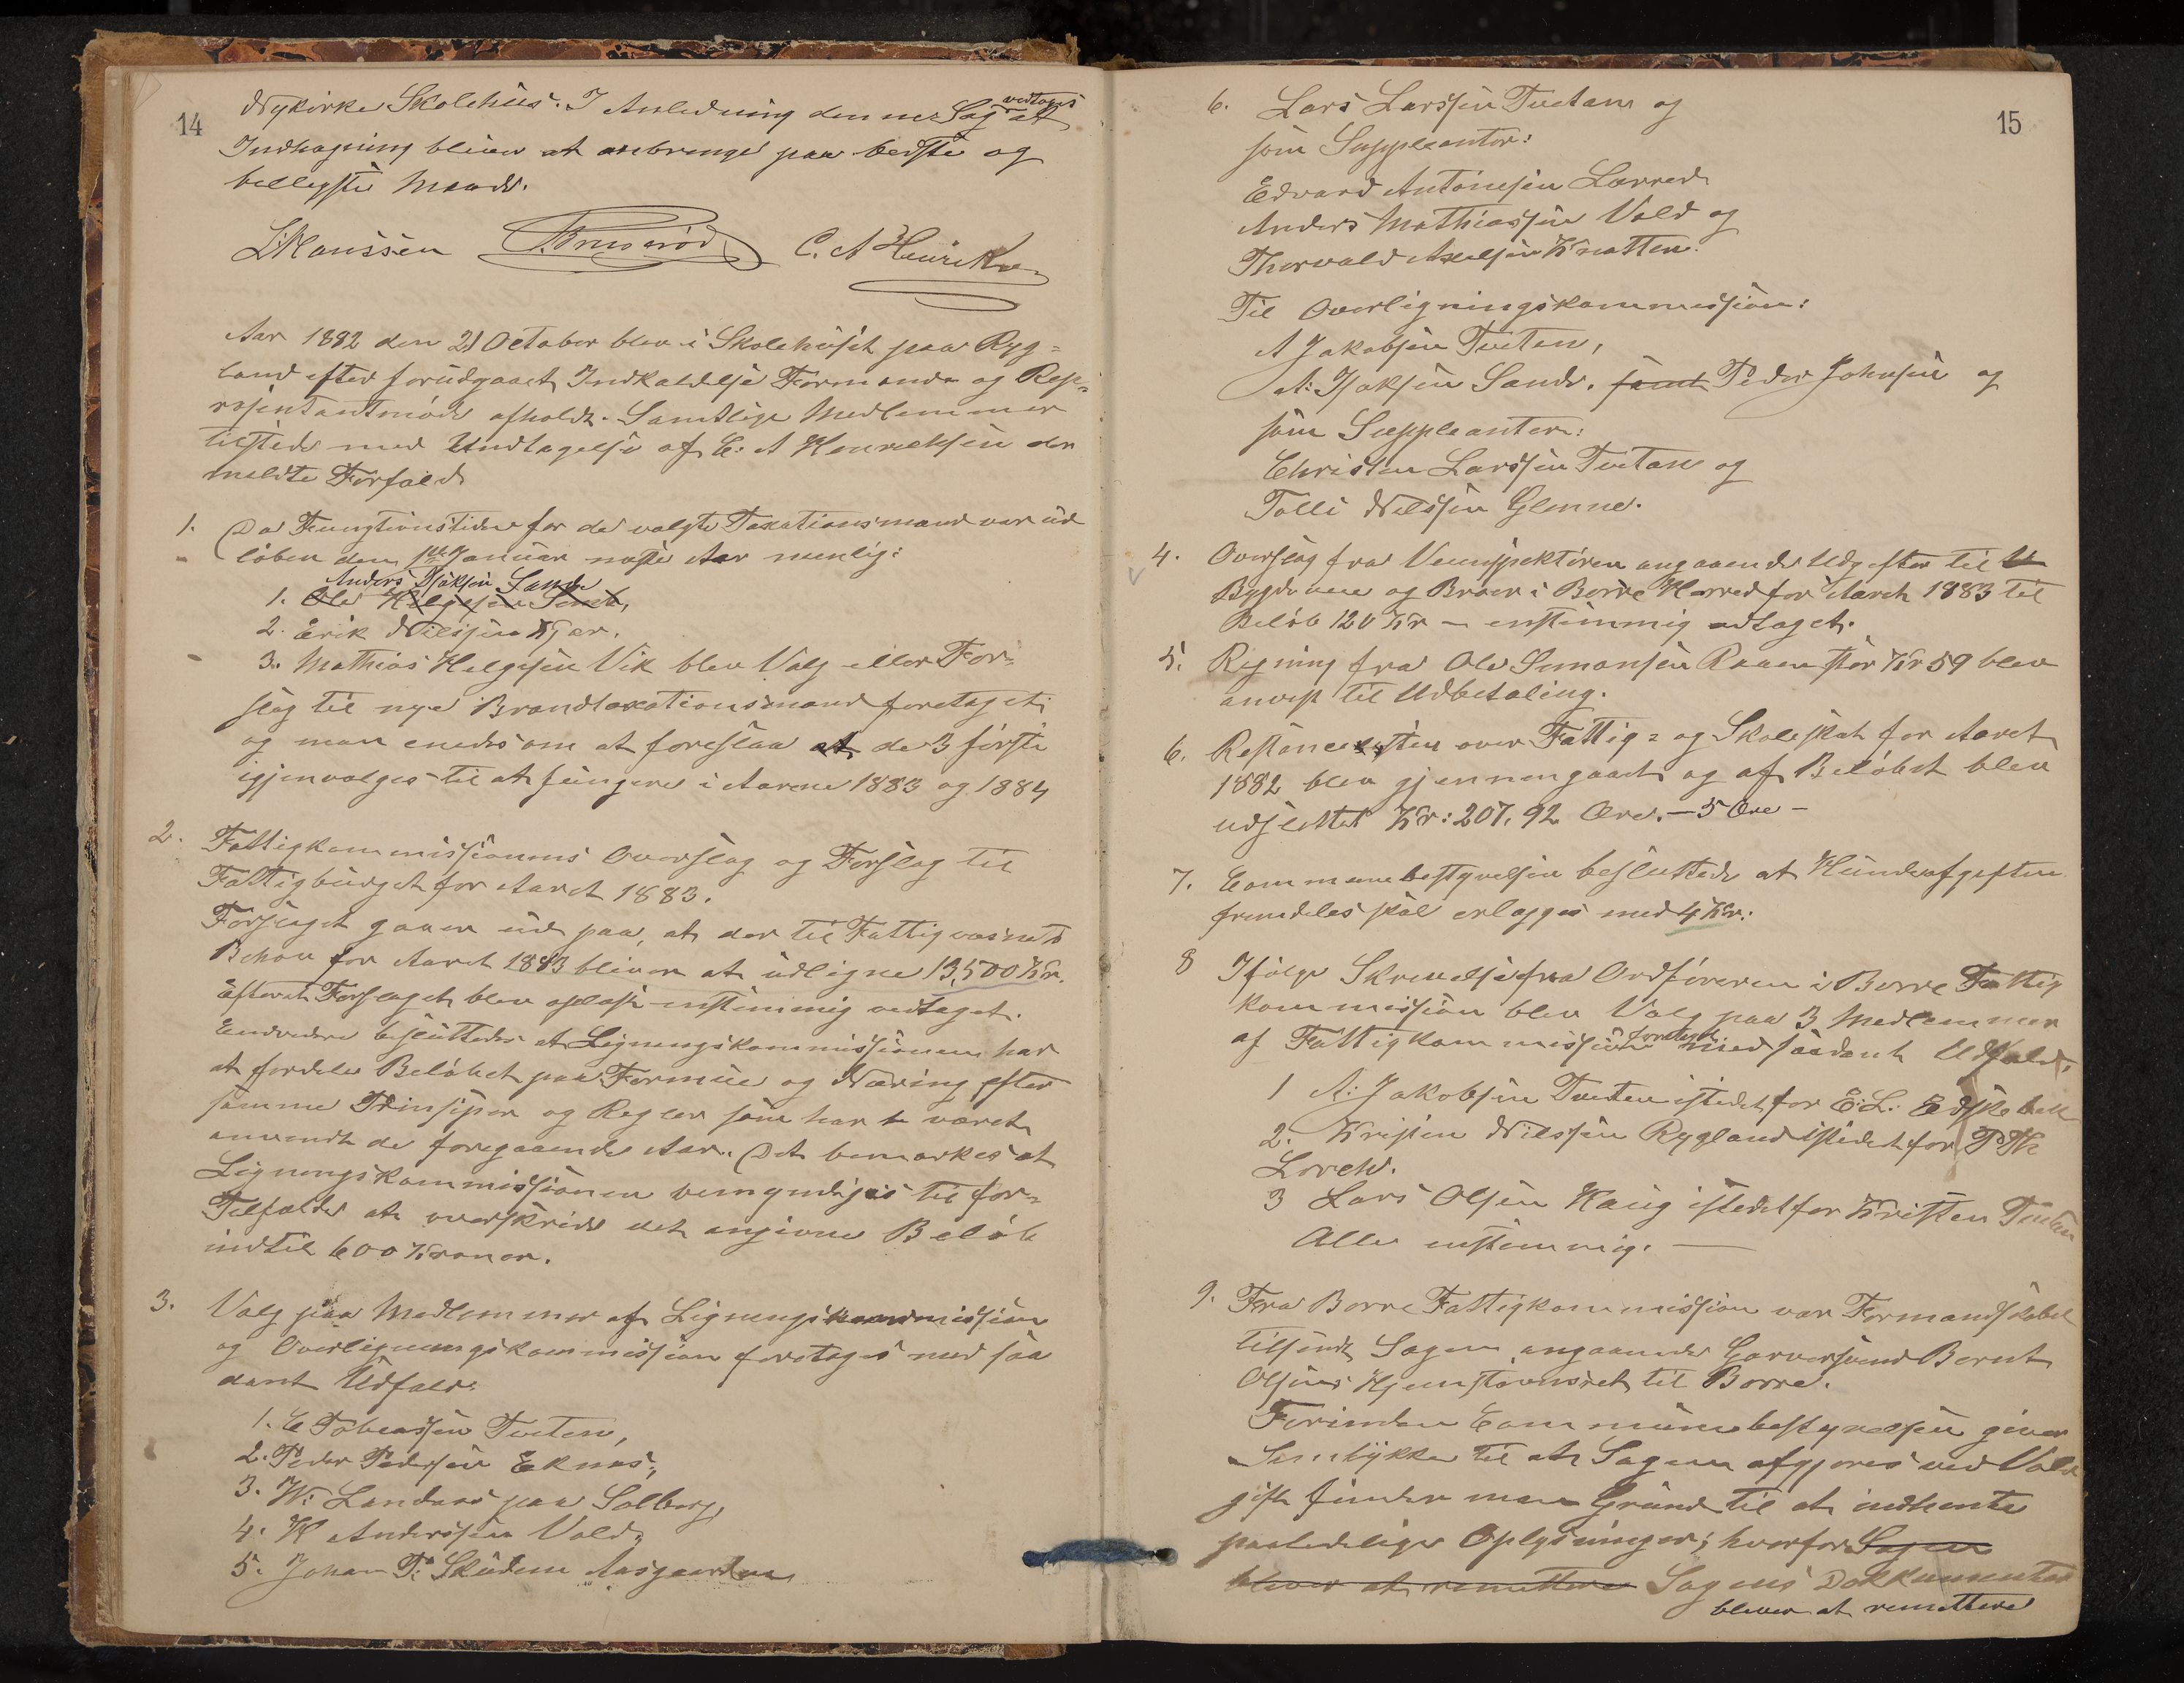 14
Nykirke Skolehus. I Anledning denne Sag vedtoges at
Indhegning bliver at anbringe paa bedste og
billigste Maade.
L Hanssen C. A Henriksen
Aar 1882 den 21 October blev i Skolehuset paa Ryg=
land efter forudgaaet Indkaldelse Formands og Rep=
resentantmøde afholdt. Samtlige Medlemmer
tilstede med Undtagelse af C. A Henriksen der
meldte Forfald
1. Da Fungtionstiden for de valgte Taxationsmænd var ud
løben den 1ste Januar næste Aar nemlig:
Anders Isaksen Sande
1. Ole Helgesen Sande,
2. Erik Nilsen Kjær.
3. Mathias Helgesen Vik blev Valg eller For=
slag til nye Brandtaxationsmænd foretaget
og man enedes om at foreslaa at de 3 første
igjenvælges til at fungere i Aarene 1883 og 1884
2. Fattigkommissionens Overslag og Forslag til
Fattigbudget for Aaret 1883.
Forslaget gaaer ud paa, at der til Fattigvæsnets
Behov for Aaret 1883 bliver at udligne 13,500 Kr.
Efterat Forslaget blev oplæst enstemmig vedtaget.
Endvidere besluttedes at Ligningskommissionen har
at fordele Beløbet paa Formue og Næring efter
samme Prinsiper og Regler som har været
anvendt de foregaaende Aar. Det bemærkes at
Ligningskommissionen bemyndiges til for=
Tilfælde at overskride det angivne Beløb
indtil 600 Kroner.
3. Valg paa Medlemmer af Ligningskommission
og Overligningskommission foretoges med saa
dant Udfald:
1. C Tobiassen Tveten,
2. Peder Pedersen Eknes,
3. W: Landaas paa Solberg,
4. H Anderssen Vold,
5. Johan P. Skudem Aasgaarden
15
6. Lars Larssen Tvetan og
som Suppleanter:
Edvard Antonsen Lerved
Anders Mathiassen Vold og
Thorvald Axelsen Knatten.
Til Overligningskommission:
A Jakobsen Tveten,
A: Isaksen Sande, samt Peder Johnsen og
som Suppleanter:
Christen Larssen Tvetan og
Tolli Nilssen Glenne.
4. Overslag fra Veiinspektøren angaaende Udgifter til
Bygdevei og Broer i Borre Herred for Aaret 1883 til
Beløb 120 Kr — enstemmig vedtaget.
5. Regning fra Ole Simonsen Raaen stor Kr 59 blev
anvist til Udbetaling.
6. Restancelisten over Fattig= og Skoleskat for Aaret
1882 blev gjennengaaet og af Beløbet blev
udslettet Kr: 207. 92 Øre. — 5 Øre —
7. Communebestyrelsen besluttede at Hundeafgiften
fremdeles skal erlægges med 4 Kr.
8 Ifølge Skrivelse fra Ordføreren i Borre Fattig
kommission blev Valg paa 3 Medlemmer
af Fattigkommission foretaget med saadant Udfald.
1 A: Jakobsen Tveten istedet for E: L: Edskebek
2. Kristen Nilssen Rygland istedet for P Th
Lorch.
3 Lars Olsen Haug istedet for Kristen Tveten
Alle enstemmig. —
9. Fra Borre Fattigkommission var Formandskabet
tilsendt Sagen angaaende Garversvend Bernt
Olsens Hjemstavnsret til Borre.
Forinden Communebestyrelsen giver
Samtykke til at Sagen afgjøres ved Vold
gift finder man Grund til at indhente
paalidelige Oplysninger; hvorfor Sagen
bliver at remittere Sagens Dokkumenter
bliver at remittere